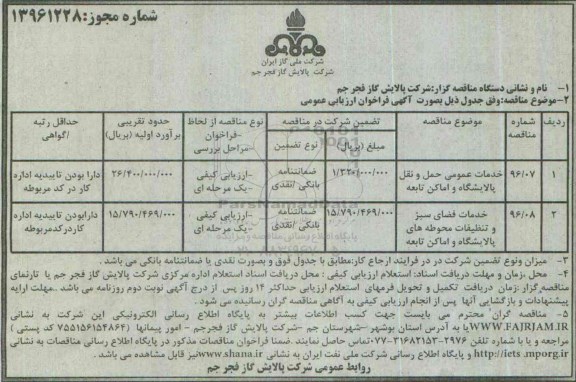 شماره مجوز: ۱۳۹۶۱۲۲۸
شرکت ملی گاز ایران
شرکت پالایش گاز فجر جم
۱- نام و نشانی دستگاه مناقصه گزار: شرکت پالایش گاز فجر جم
۲- موضوع مناقصه: وفق جدول ذیل بصورت آگهی فراخوان ارزیابی عمومی
ردیف | شماره مناقصه | موضوع مناقصه | تضمین شرکت در مناقصه | نوع مناقصه از لحاظ -فراخوان -مراحل بررسی | حدود تقریبی برآورد اولیه (بریال) | حداقل رتبه /گواهی
مبلغ (بریال) | نوع تضمین
۱ | ۹۶/۰۷ | خدمات عمومی حمل و نقل پالایشگاه و اماکن تابعه | ۱/۳۲۰/۰۰۰/۰۰۰ | ضمانتنامه بانکی /نقدی | -ارزیابی کیفی -یک مرحله ای | ۲۶/۴۰۰/۰۰۰/۰۰۰ | دارا بودن تاییدیه اداره کار در کد مربوطه
۲ | ۹۶/۰۸ | خدمات فضای سبز و تنظیفات محوطه های پالایشگاه و اماکن تابعه | ۱۵/۷۹۰/۴۶۹/۰۰۰ | ضمانتنامه بانکی /نقدی | -ارزیابی کیفی -یک مرحله ای | ۱۵/۷۹۰/۴۶۹/۰۰۰ | دارابودن تاییدیه اداره کار در کد مربوطه
۳- میزان ونوع تضمین شرکت در در فرایند ارجاع کار: مطابق با جدول فوق و بصورت نقدی یا ضمانتنامه بانکی می باشد.
۴- محل ،زمان و مهلت دریافت اسناد: استعلام ارزیابی کیفی : محل دریافت اسناد استعلام اداره مرکزی شرکت پالایش گاز فجر جم یا تارنمای
مناقصه گزار .زمان دریافت تکمیل و تحویل فرمهای استعلام ارزیابی حداکثر ۱۴ روز پس از درج آگهی نوبت دوم روزنامه می باشد .مهلت ارایه
پیشنهادات و بازگشایی آنها پس از انجام ارزیابی کیفی به آگاهی مناقصه گران رسانیده می شود.
۵- مناقصه گران محترم می بایست جهت کسب اطلاعات بیشتر به پایگاه اطلاع رسانی الکترونیکی این شرکت به نشانی
WWW.FAJRJAM.IR یا به آدرس استان بوشهر –شهرستان جم –شرکت پالایش گاز فجرجم - امور پیمانها (۷۵۵۱۵۶۱۵۴۸۶۴ کد پستی )
مراجعه و یا با شماره تلفن ۲۹۷۶-۰۷۷-۳۱۶۸۲۱۵۳ تماس حاصل نمایند .ضمنا فراخوان مناقصات مذکور در پایگاه اطلاع رسانی مناقصات به نشانی
http://iets.mporg.ir و پایگاه اطلاع رسانی شرکت ملی نفت ایران به نشانی www.shana.ir نیز قابل مشاهده می باشد .
روابط عمومی شرکت پالایش گاز فجر جم